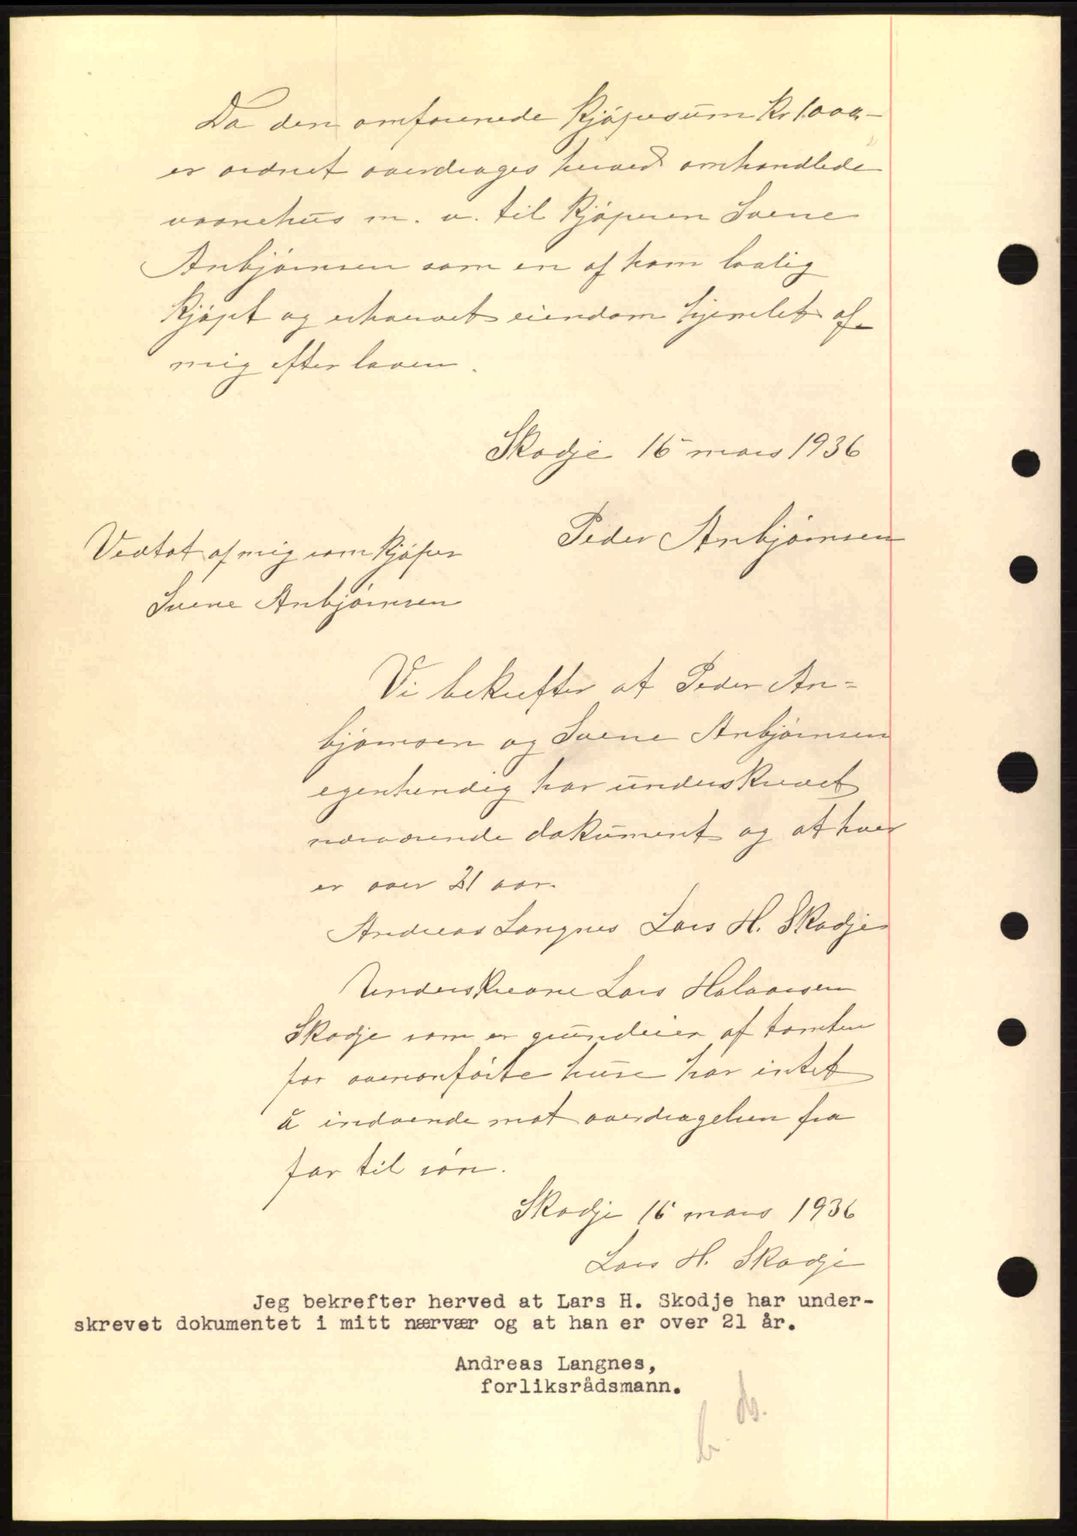 Da den omforenede kjøpesum Kr 1000,-
er ordnet overdrages herved omhandlede
vaanehus m. v. til kjøperen Sverre
Anbjørnsen som en af ham lovlig
kjøpt og erhvervet eiendom hjemlet af
mig efter loven.
Skodje 16 mars 1936
Peder Anbjørnsen
Vedtat af mig som kjøper
Sverre Anbjørnsen
Vi bekrefter at Peder An=
bjørnsen og Sverre Anbjørnsen
egenhendig har underskrevet
nærværende dokument og at hver
er over 21 aar.
Andreas Langnes Lars H. Skodje
Underskrevne Lars
Skodje som er grundeier af tomten
for ovenanførte huse har intet
å indvende mot overdragelsen fra
far til søn.
Skodje 16 mars 1936
Lars H. Skodje
Jeg bekrefter herved at Lars H. Skodje har under-
skrevet dokumentet i mitt nærvær og at han er over 21 år.
Andreas Langnes,
forliksrådsmann.